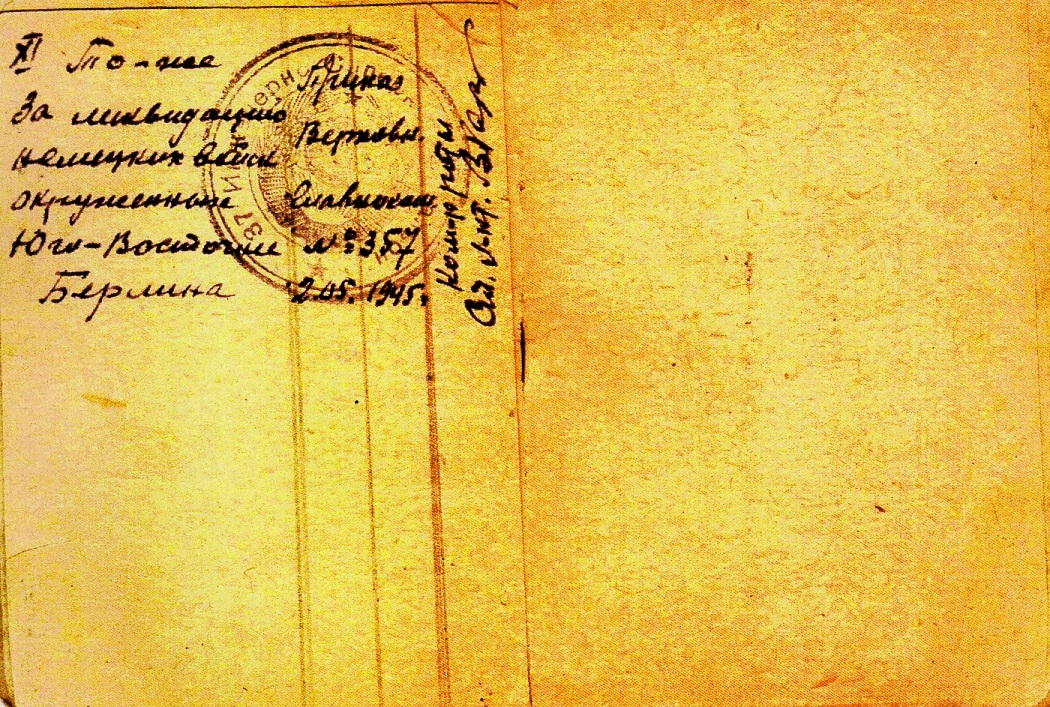 XI То-же
За ликвидацию
немецких войск
окруженных
Юго-Восточне
Берлина
Приказ
Верховн.
Главноком
№ 357
2.05.1945г.
Ком. роты
Ст. л-нт.
37